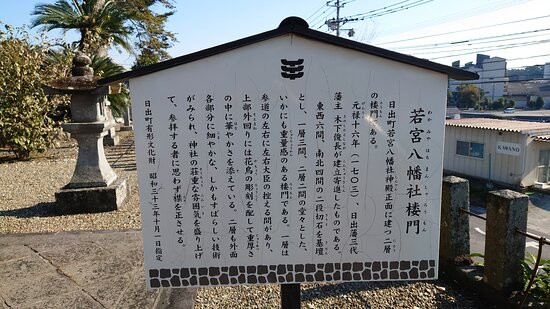 若宮八幡社楼門
わかみやはちまんしゃろうもん
日出町若宮八幡社神殿正面に建つ二層
の楼門である。
元禄十六年(一七〇三)、日出藩三代
藩主 木下俊長が建立寄進したものである。
東西六間、南北四間の二段切石を基壇
とし、一層三間、二層二間の堂々とした、
いかにも重量感のある楼門である。一層は
参道の左右に左右大臣の控える間があり、
上部外回りには花鳥の彫刻を配して重厚さ
の中に華やかさを添えている。二層も外面
各部分に細やかな、しかもすばらしい技術
がみられ、神社の荘重な雰囲気を盛り上げ
て、参拝する者に思わず襟を正させる。
日出町有形文化財 昭和三十三年十月一日指定
KAWANO